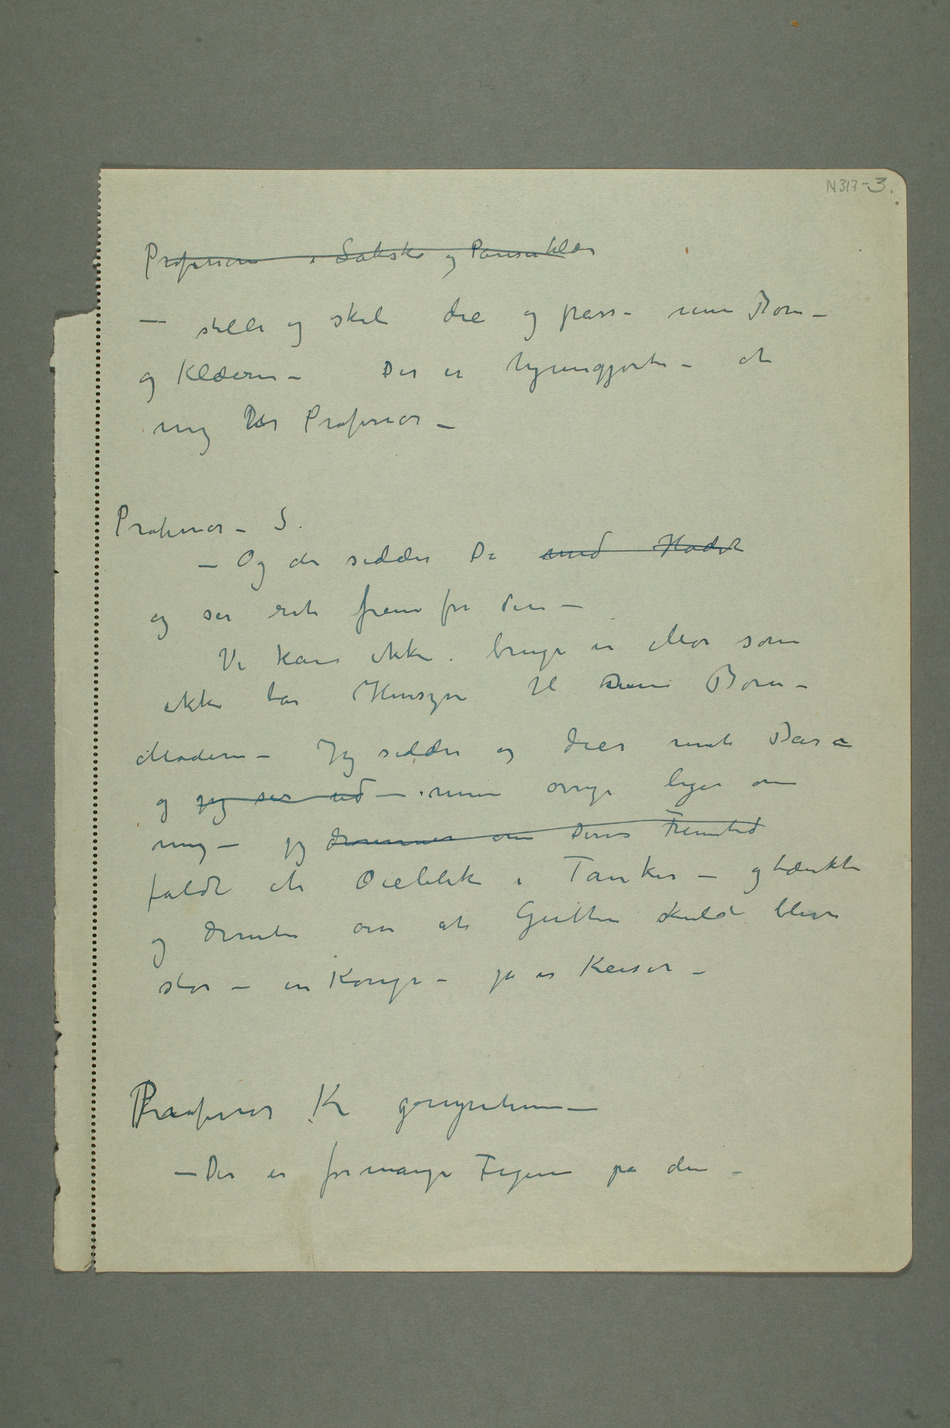 N317-3.
Professoren i Laksko og Pariserklær
— stelle og skal die og passe mine Børn —
og Klæerne — Det er løgn — at
mig Professor —
Professor — S.
— Og der sidder De med Hodet
og ser ret frem for Dem —
Vi kan ikke bruge en Mor som
ikke tar Hensyn til sine Børn —
Moderen — Jeg sidder og dier mit Barn
og jeg ser ud — mine øvrige ligger om
mig — jeg drømmer om Deres Fremtid
faldt et Øieblik i Tanker — og tænkte
og drømte om at Gutten skulde blive
stor — en Konge — ja en Keiser —
Professor Kr
— Der er for mange Figurer på den —